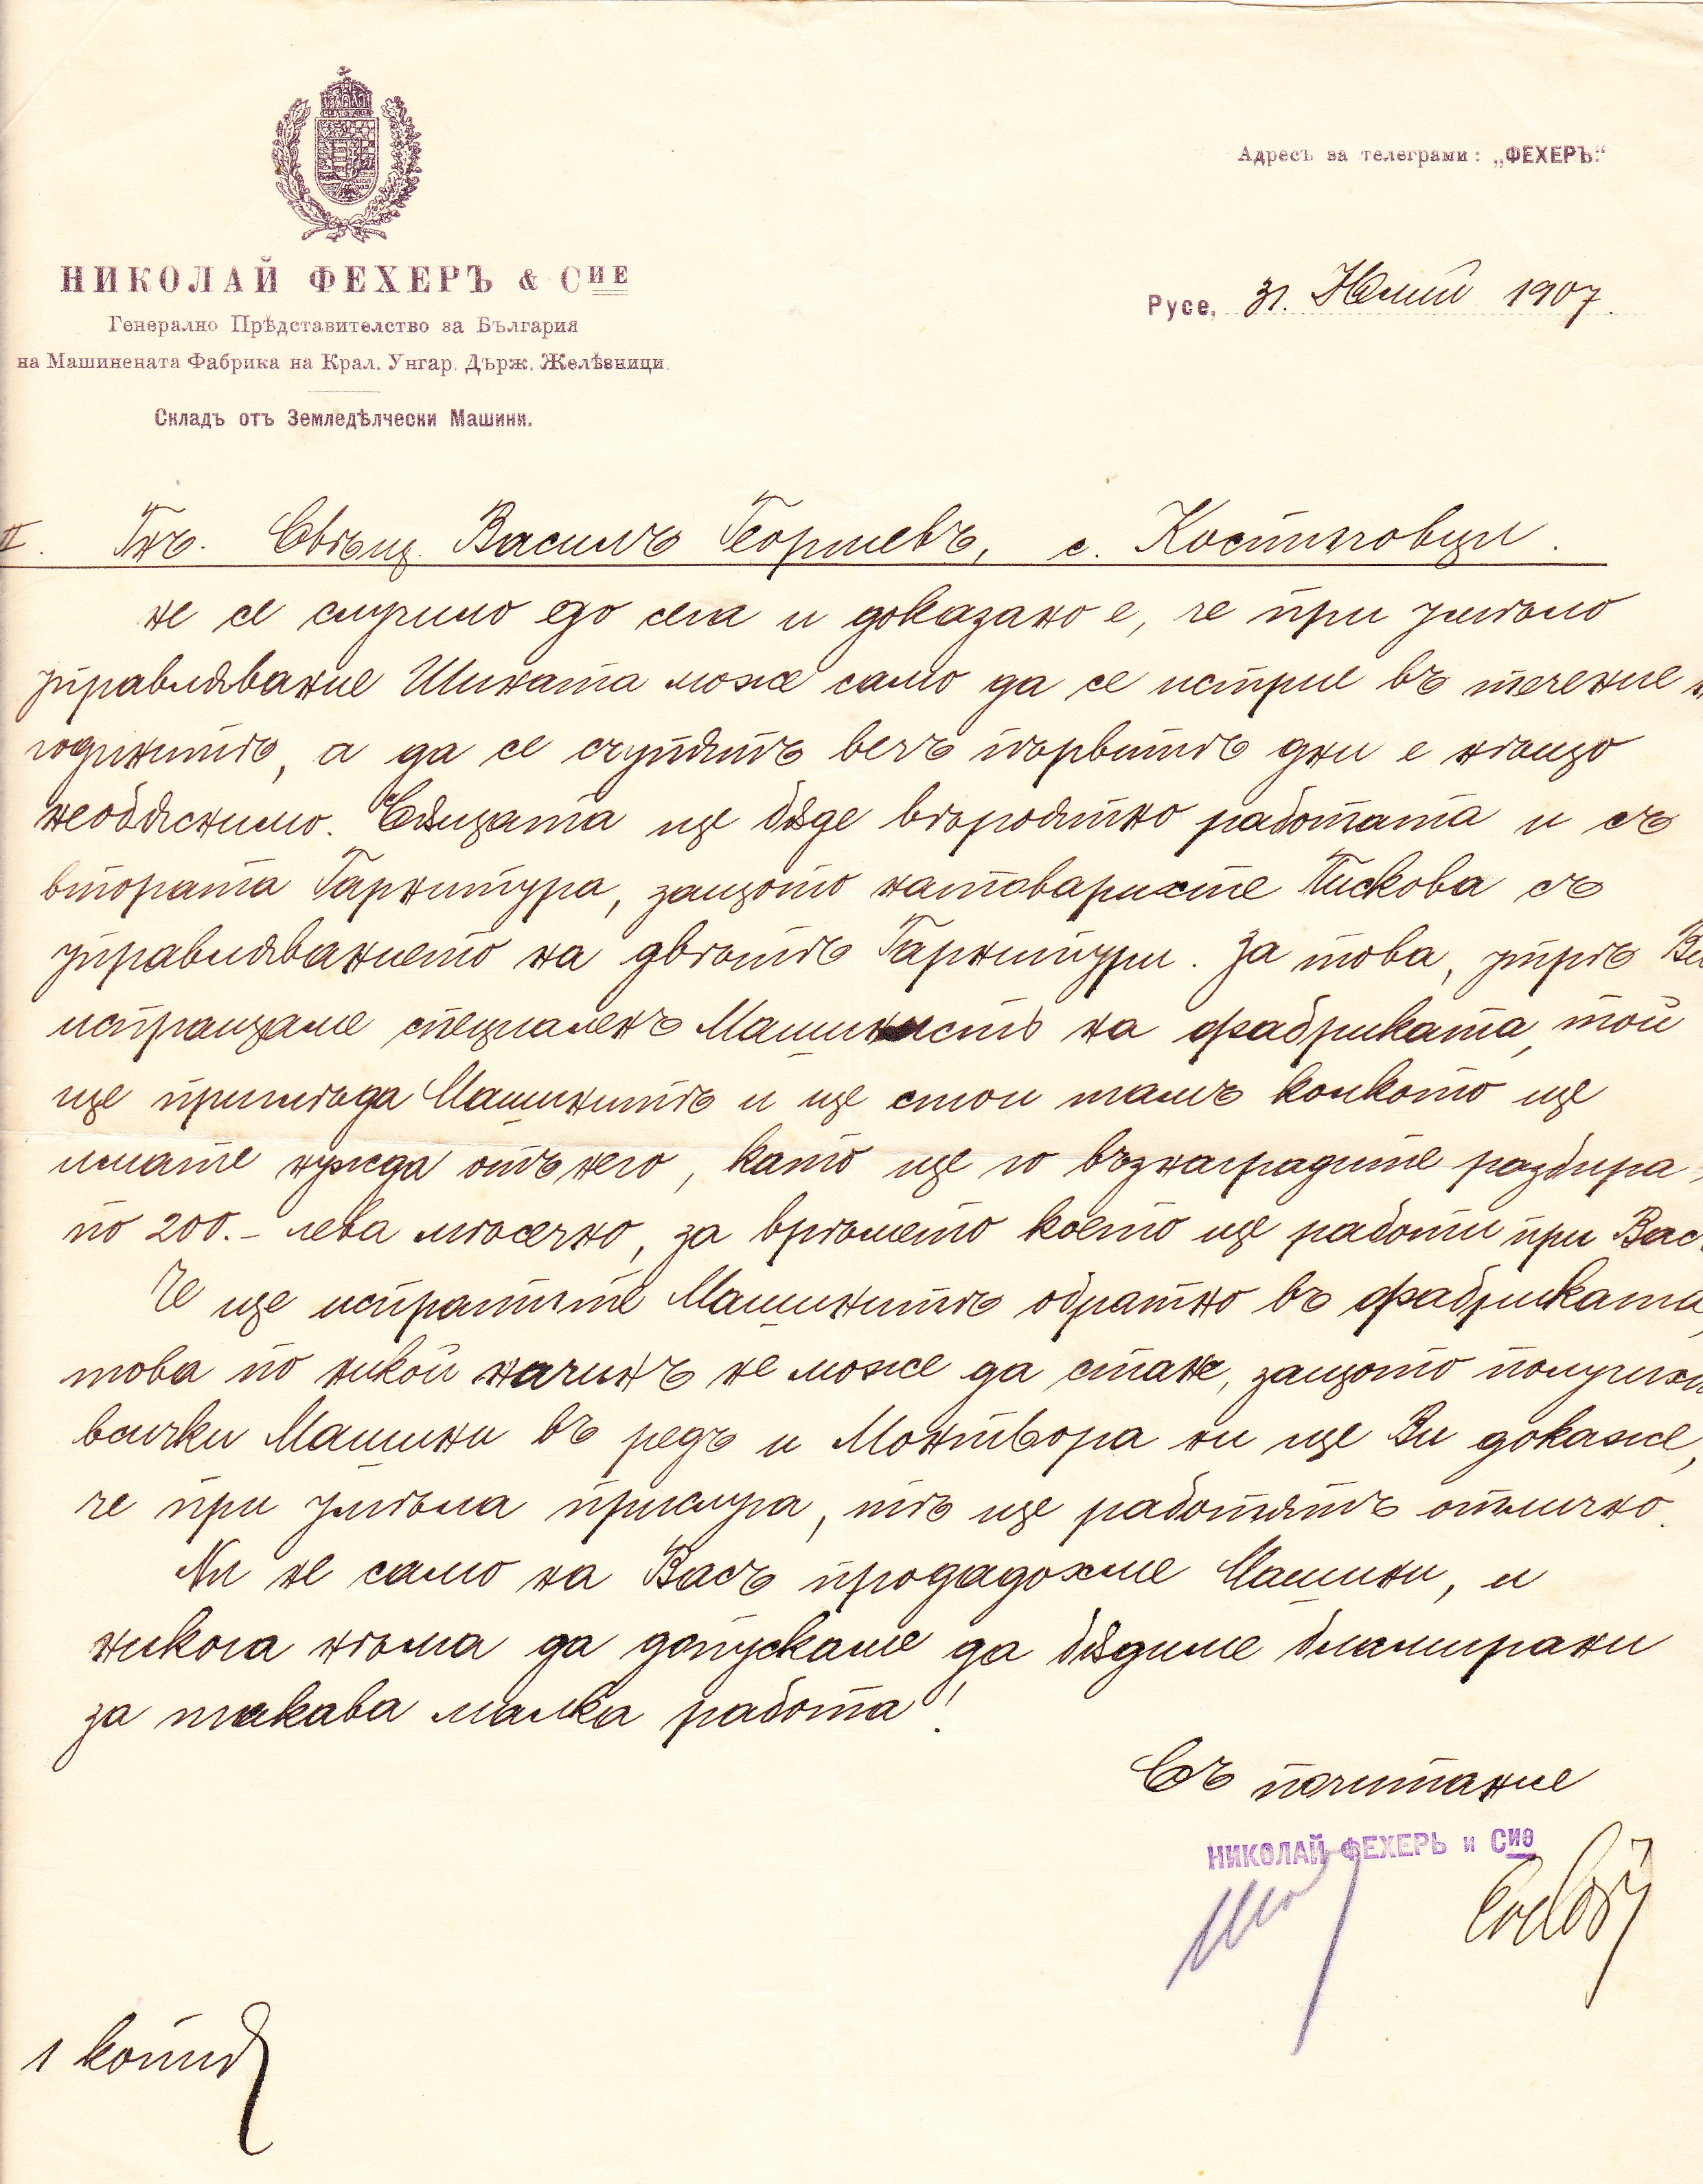 Адресъ за телеграми: „ФЕХЕРЪ“
НИКОЛАЙ ФЕХЕРЪ & СИЕ
Генерално Прѣдставителство за България
на Машинената Фабрика на Крал. Унгар. Държ. Желѣзници.
Складъ отъ Земледѣлчески Машини.
Русе, 31. Юлий 1907.
II. Гнъ. Свѣщ. Василъ Георгиевъ, с. Костинговци.
не се случило до сега и доказано е, че при умѣло
управляванне Шината може само да се истрие въ течение н
годинитѣ, а да се счупятъ вечъ първитѣ дни е нѣщо
необяснимо. Сѫщата ще бѫде вѣроятно работата и съ
втората Гарнитура, защото натоварихте Пискова съ
управляванието на двѣтѣ Гарнитури. За това, утрѣ Ви
испращаме специаленъ Машинистъ на фабриката, той
ще пригледа Машинитѣ и ще стои тамъ колкото ще
имате нужда отъ него, като ще го възнаградите разбира,
по 200.- лева мѣсечно, за врѣмето което ще работи при Васъ.
Че ще испратите Машинитѣ обратно въ фабриката,
това по никой начинъ не може да стане, защото получихте
всички Машини въ редъ и Монтьора ни ще Ви докаже,
че при умѣла прислуга, тѣ ще работятъ отлично.
Ни не само на Васъ продадохме Машини, и
никога нѣма да допускаме да бѫдиме бламирани
за такава малка работа!
Съ почитание
НИКОЛАЙ ФЕХЕРЪ и Сие
1 копия